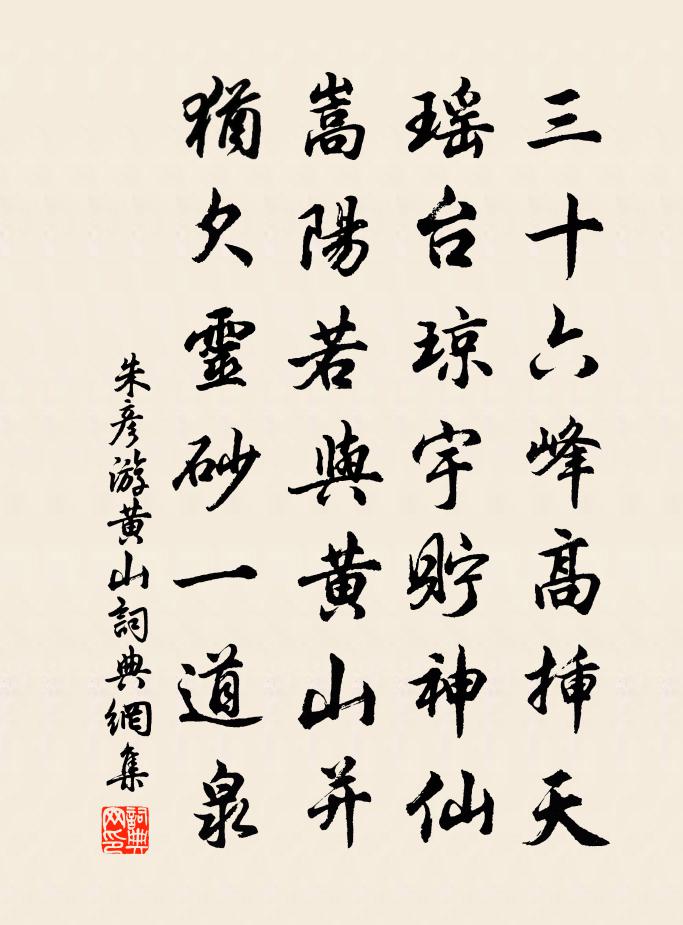 三十六峰高揷天
瑶台琼宇貯神仙
嵩陽若與黄山并
猶欠靈砂一道泉
朱彦游黄山詞典網集
詞典网印